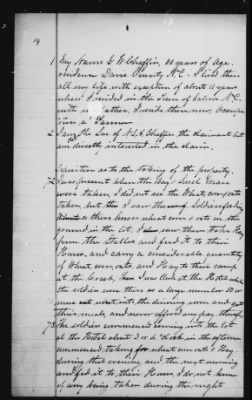 19
1 My Name G W Chaffin, 38 years of Age.
residence Davie County N.C. I have lived there
all my life, with exception of about 11 years
when I resided in the Town of Salem N.C.
with my Father, I reside there now, Occupa
tion a Farmer
2 I am the Son of N.S.A. Chaffin the claimant but
am directly interested in the claim.
Question as to the taking of the property.
72 I was present when the Hay
were taken, I did not see the Wheat
taken, but then I saw the Soldiers
there house wheat corn & oats in the
ground in the lot, I also saw them take Hay
from the Stables and feed it to their
Horses, and carry a considerable quantity
of Wheat, corn, oats and Hay to their camp
at the Creek, then I was back at the Hotel while
the soldiers were there so a large number 50 or
more eat went into the dining room and got
their meals, and never offered any pay therefor
73 The soldiers commenced coming into the lot
at the Hotel about 3 or 4 o'clock in the afternoon
commenced taking for wheat corn oats & Hay
during that evening, and the next morning
and fed it to their Horses, I do not know
of any being taken during the night